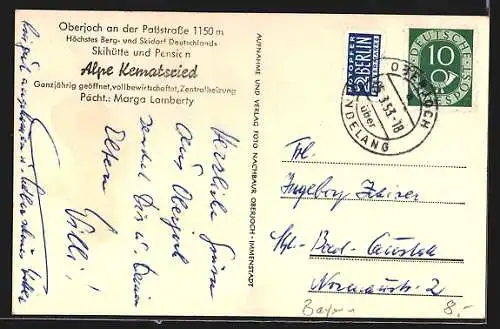 Oberjoch an der Paßstraße 1150 m
Höchstes Berg- und Skidorf Deutschlands
Skihütte und Pension
Alpe Kematsried
Ganzjährig geöffnet, vollbewirtschaftet, Zentralheizung
Pächt.: Marga Lamberty
Herzliche Grüße
aus Oberjoch
sendet Dir u. Deinen
Eltern
Willi!
AUFNAHME UND VERLAG FOTO NACHBAUR OBERJOCH - IMMENSTADT
NOTOPFER
2 BERLIN
STEUERMARKE
DEUTSCHE
10
BUNDESPOST
OBERJOCH
über
HINDELANG
3.53-18
Frl.
Ingeborg
Bad-Cannstatt
Bayern
8.-